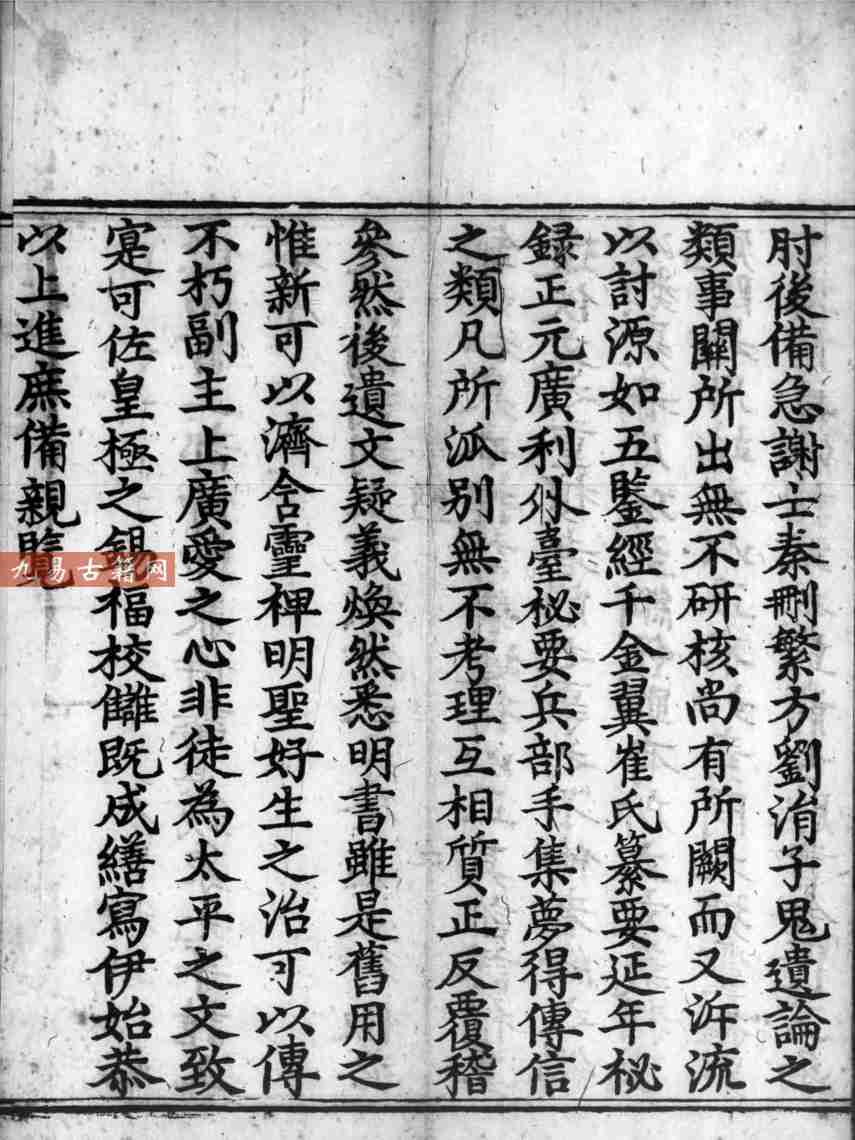 肘後備急謝士秦刪繁方劉涓子鬼遺論之
類事關所出無不研核尚有所闕而又泝流
以討源如五鑒經千金翼崔氏纂要延年秘
録正元廣利外臺秘要兵部手集夢得傳信
之類凡所派别無不考理互相質正反覆稽
參然後遺文疑義煥然悉明書雖是舊用之
惟新可以濟含靈裨明聖好生之治可以傳
不朽副主上廣愛之心非徒為太平之文致
寔可佐皇極之錫福校讎既成繕寫伊始恭
以上進庶備親覧
九易古籍网